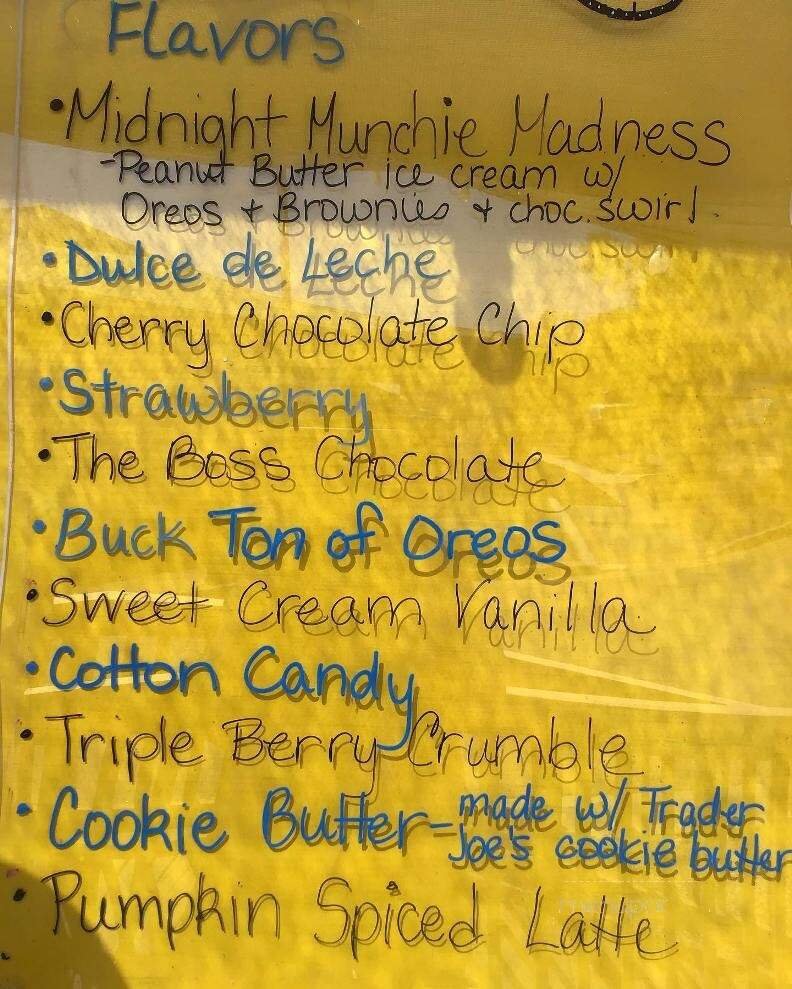 Flavors
• Midnight Munchie Madness
- Peanut Butter ice cream w/
Oreos + Brownies + choc. swirl.
• Dulce de Leche
• Cherry Chocolate Chip
• Strawberry
• The Boss Chocolate
• Buck Ton of Oreos
• Sweet Cream Vanilla
• Cotton Candy
• Triple Berry Crumble
• Cookie Butter - made w/ Trader
Joe's cookie butter
• Pumpkin Spiced Latte